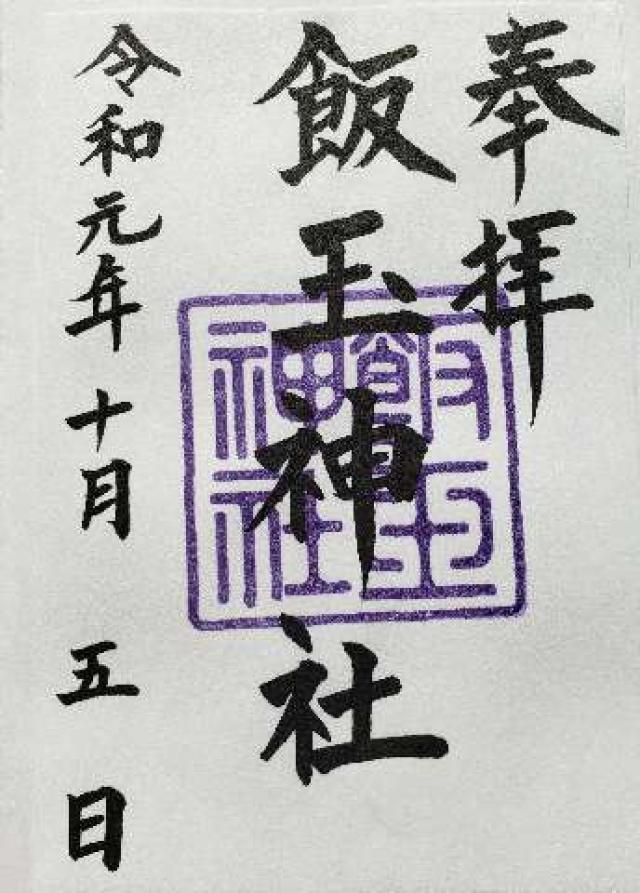 奉拝
飯玉神社
飯玉神社
令和元年十月五日